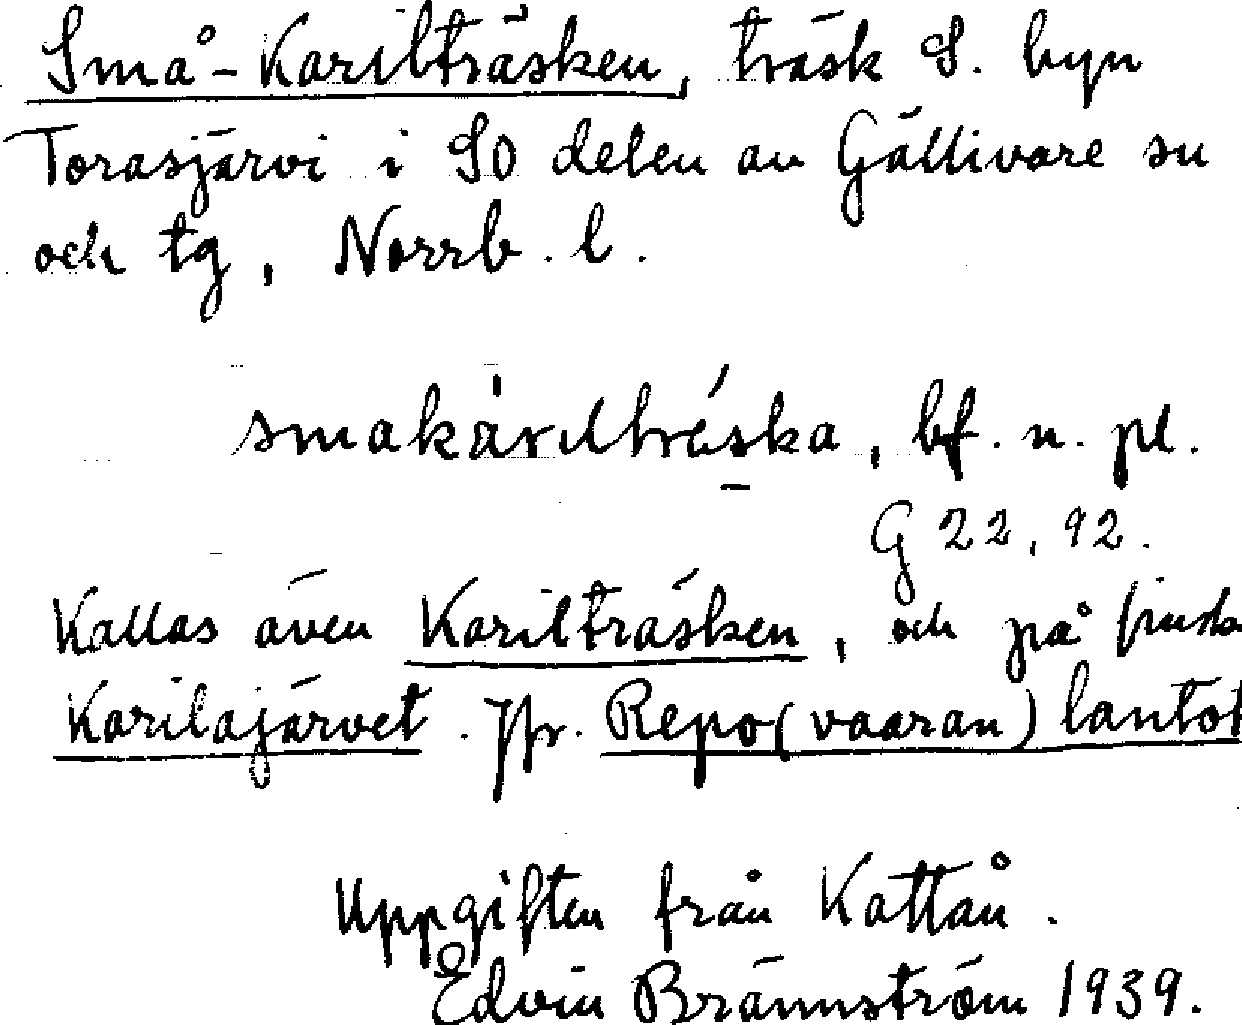 Små-Karilträsken, träsk S. byn
Torasjärvi i SO delen av Gällivare sn
och tg, Norrb. l.
smakärilträska, bf. n. pl.
G 22, 92.
Kallas även Karilträsken, och på finska
Karilajärvet. Jfr. Repo(vaaran)lantot
Uppgiften från Kattån.
Edvin Brännström 1939.